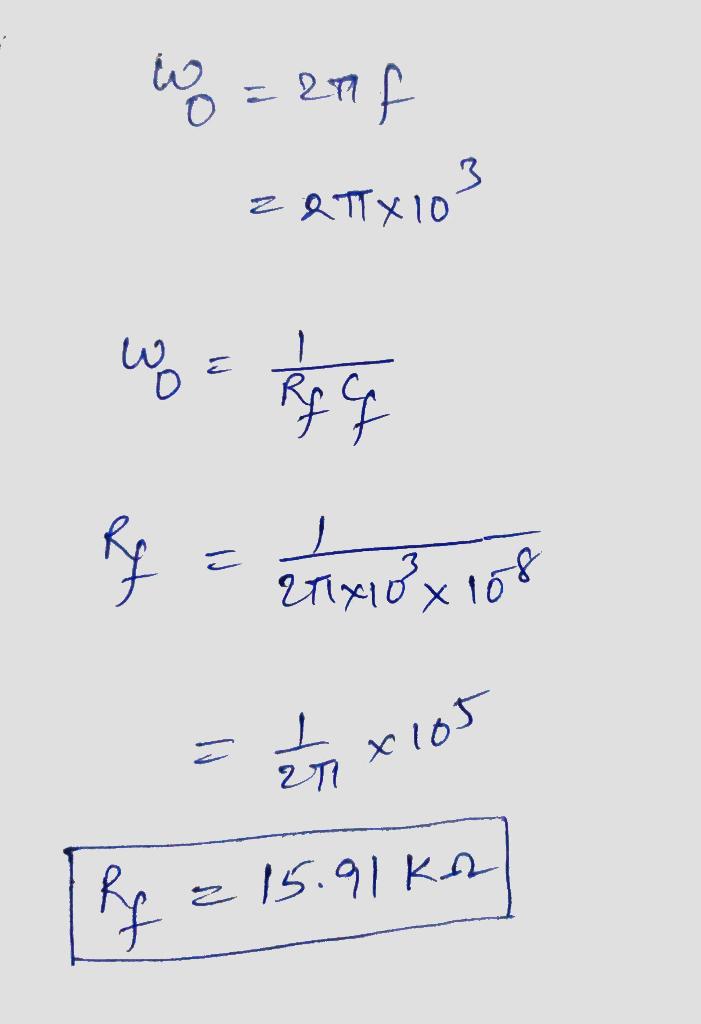 ω₀ = 2π f
= 2π×10³
ω₀ = 1/(R_f C_f)
R_f = 1/(2π×10³ × 10⁻⁸)
= 1/2π × 10⁵
R_f = 15.91 KΩ